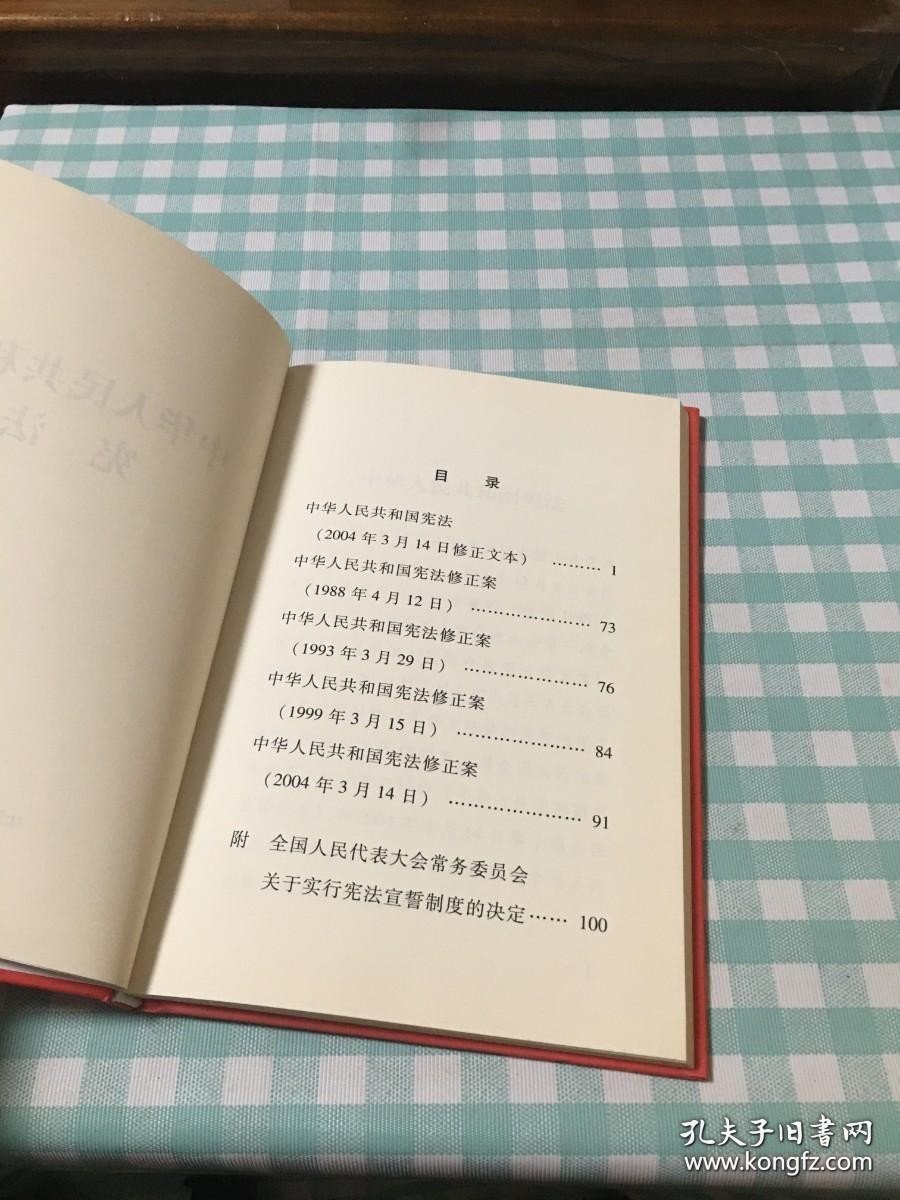 目 录
中华人民共和国宪法
(2004 年 3 月 14 日修正文本) ……… 1
中华人民共和国宪法修正案
(1988 年 4 月 12 日) ………………… 73
中华人民共和国宪法修正案
(1993 年 3 月 29 日) ………………… 76
中华人民共和国宪法修正案
(1999 年 3 月 15 日) ………………… 84
中华人民共和国宪法修正案
(2004 年 3 月 14 日) ………………… 91
附 全国人民代表大会常务委员会
关于实行宪法宣誓制度的决定 …… 100
孔夫子旧书网
www.kongfz.com